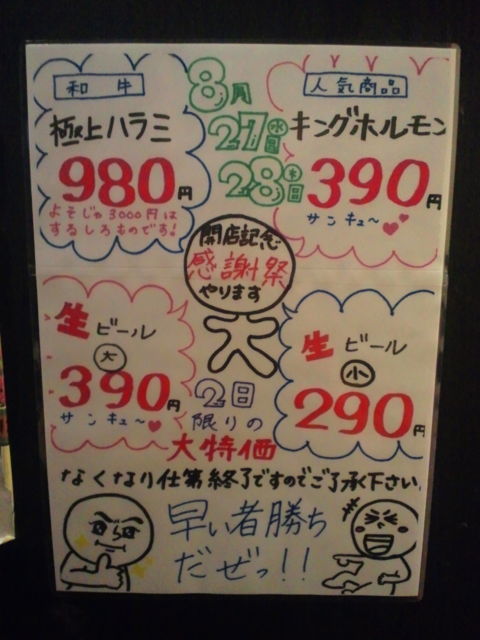 和牛
極上ハラミ
980円
よそじゃ3000円は
するしろものです!
8月
27水曜日
28木曜日
人気商品
キングホルモン
390円
サンキュ〜
開店記念
感謝祭
やります
大
生ビール
大
390円
サンキュ〜
2日
限りの
大特価
生ビール
小
290円
なくなり仕第終了ですのでご了承下さい
早い者勝ち
だぜっ!!